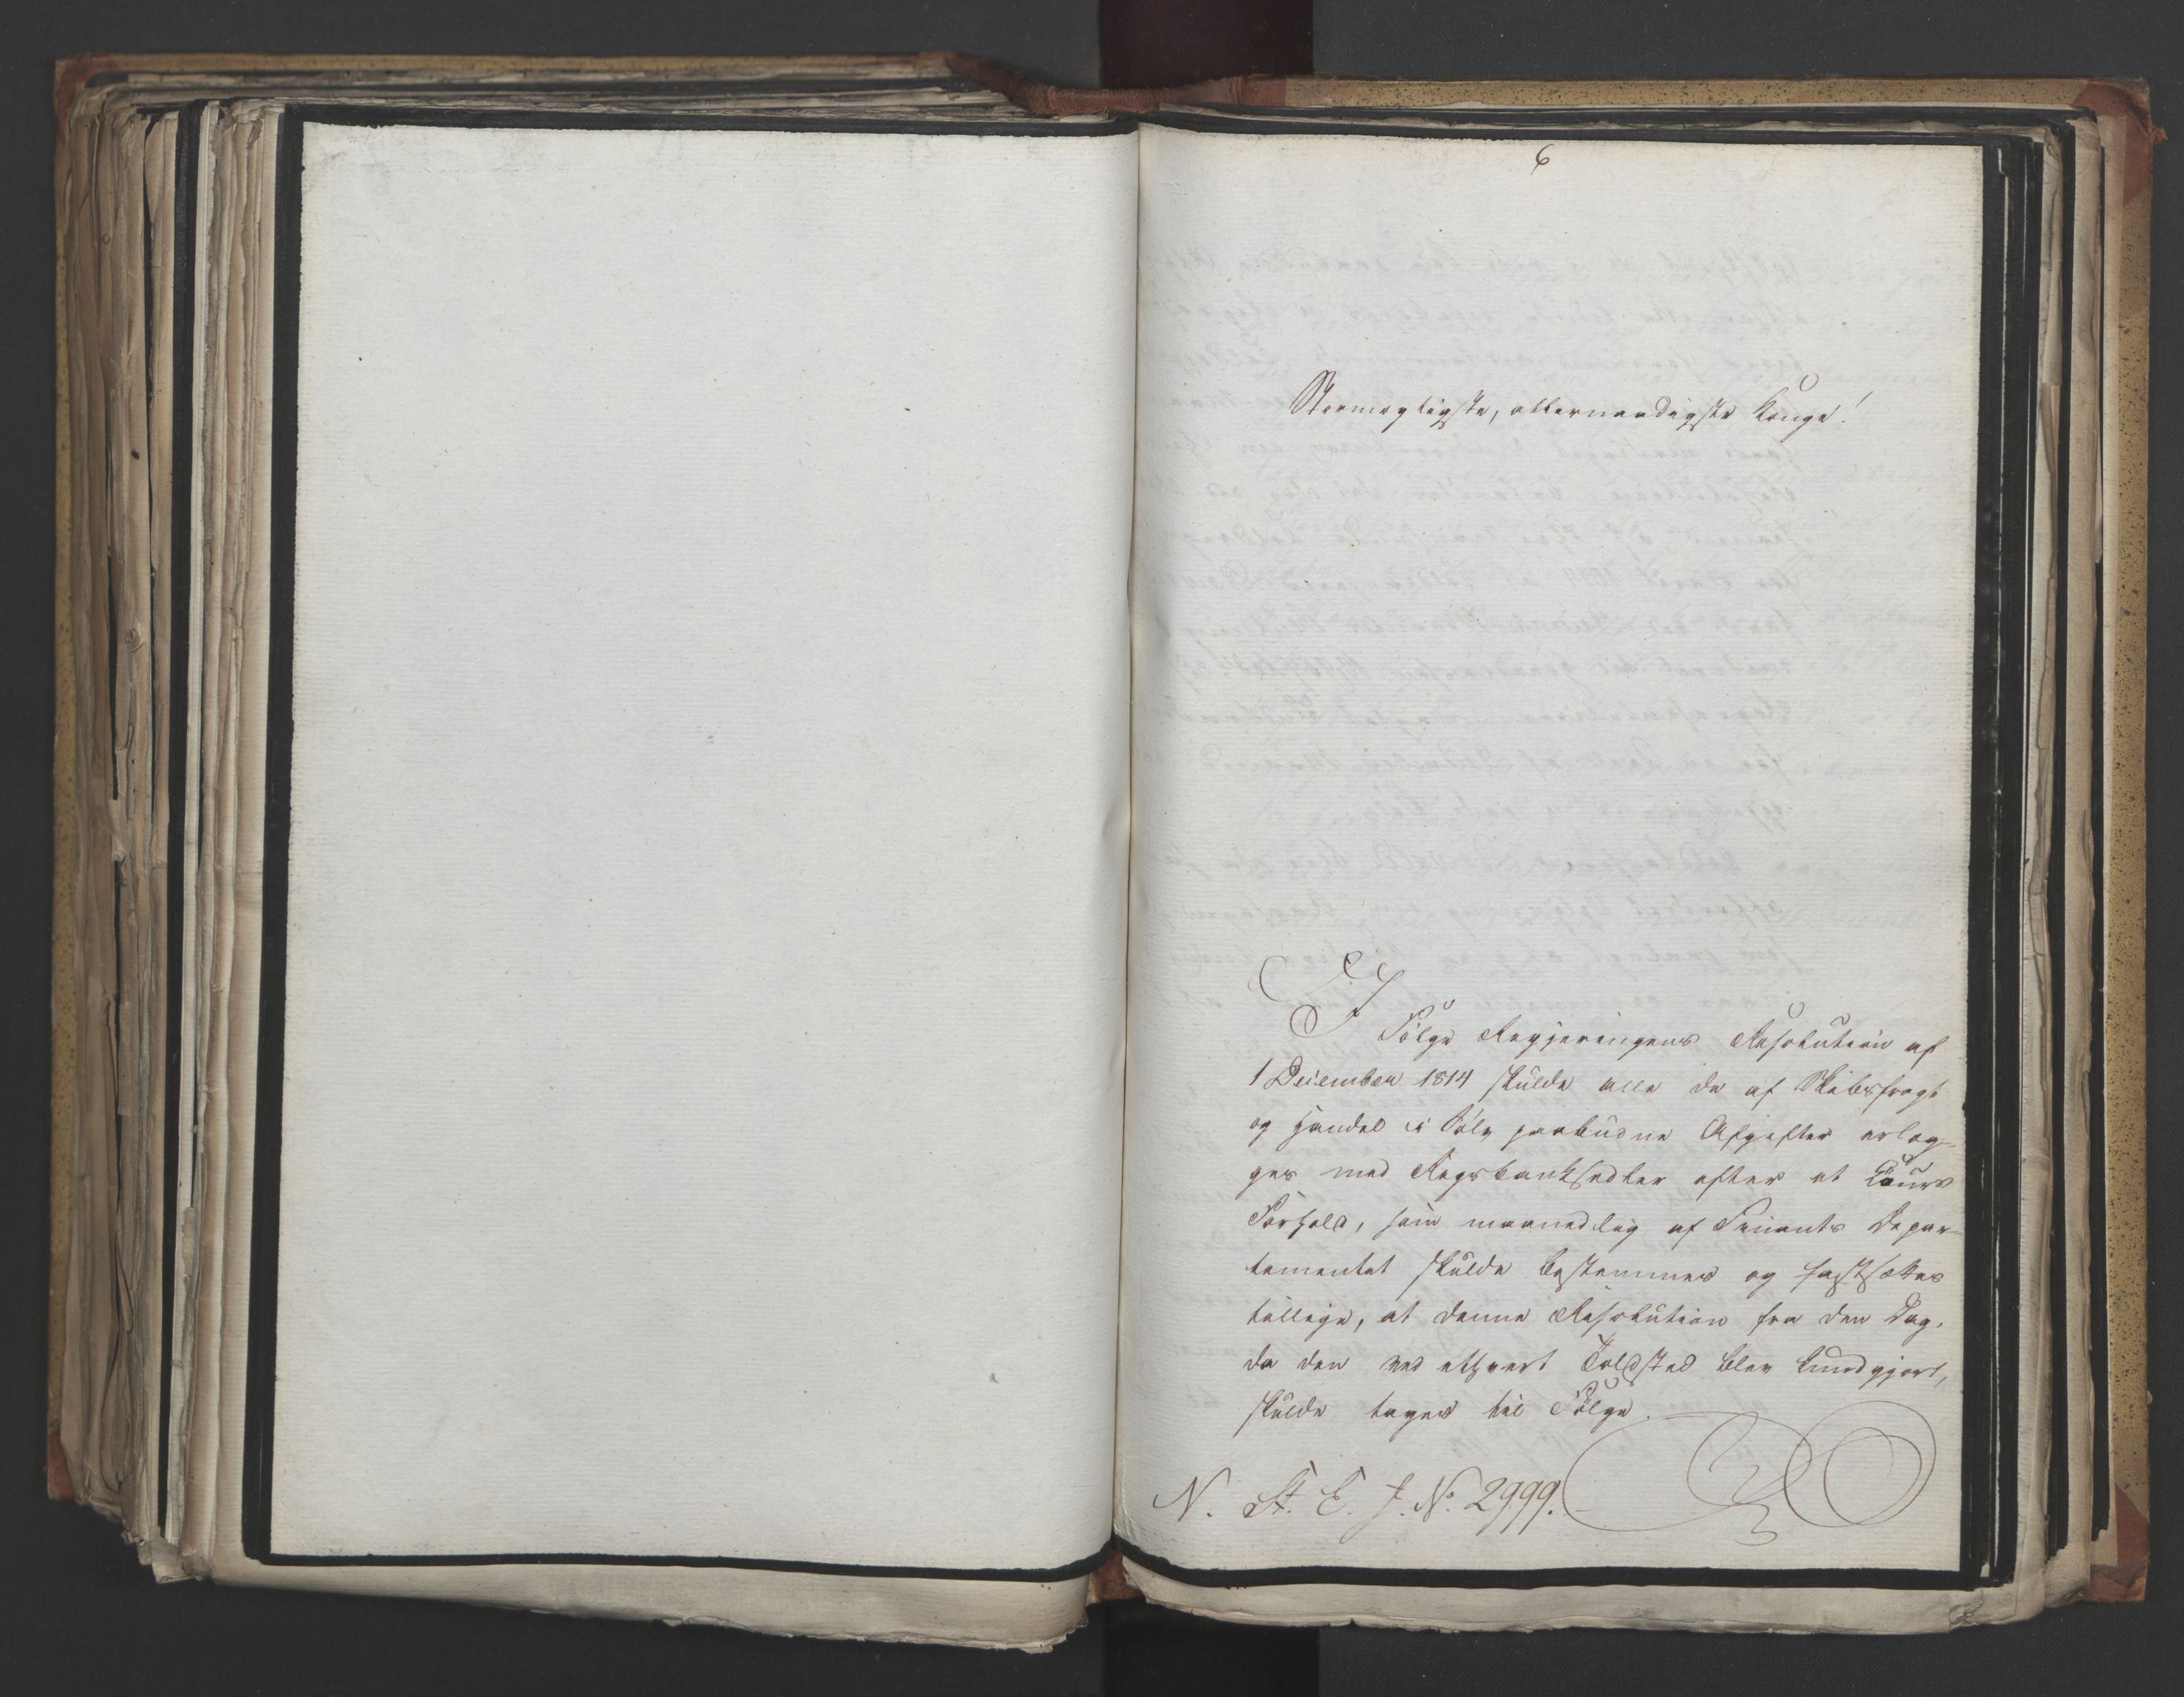 6
Stormægtigste, allernaadigste Konge!
I
Følge Regjeringens Resolution af
1 December 1814 skulde alle de af Skibsfragt
og Handel i Sølv paabudne Afgifter erlæg-
ges med Rigsbanksedler efter et Cours
Forhold, som maanedlig af Finants Depar-
tementet skulde bestemmes og fastsættes
tillige, at denne Resolution fra den Dag,
da den ved ethvert Toldsted blev kundgjort,
skulde tages til Følge.
N. St. E. J. No. 2999.